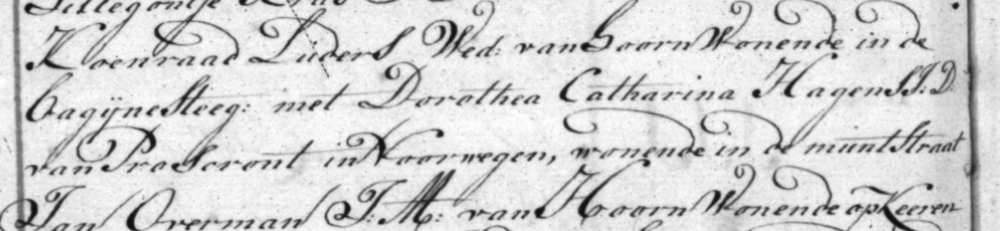 Koenraad Luders Wed: van Hoorn Wonende in de
bagijne steeg: met Dorothea Catharina Hagens J: D:
van Proscront in Noorwegen, wonende in de munt straat
Jan Overman J: M: van Hoorn Wonende op Keeren